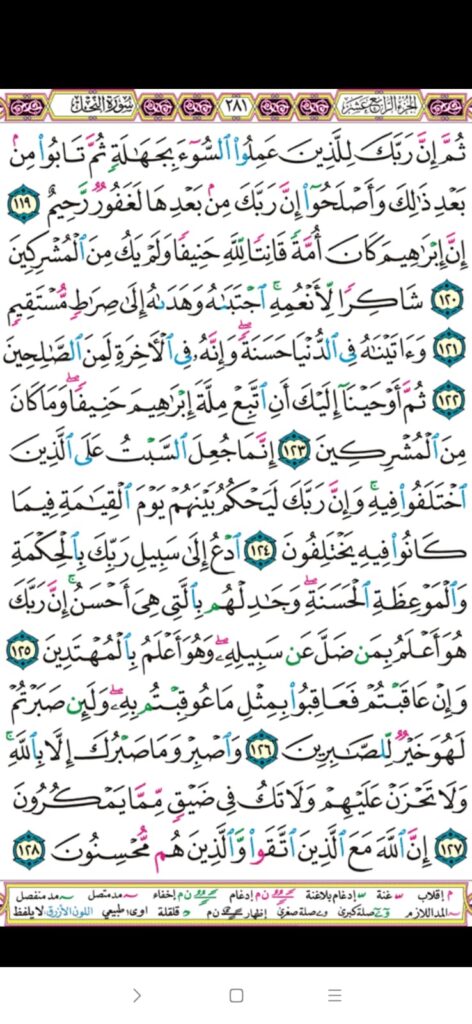 الجزء الرابع عشر ٢٨١ سورة النحل
ثُمَّ إِنَّ رَبَّكَ لِلَّذِينَ عَمِلُوا۟ ٱلسُّوٓءَ بِجَهَـٰلَةٍ ثُمَّ تَابُوا۟ مِنۢ
بَعْدِ ذَٰلِكَ وَأَصْلَحُوٓا۟ إِنَّ رَبَّكَ مِنۢ بَعْدِهَا لَغَفُورٌ رَّحِيمٌ ١١٩
إِنَّ إِبْرَٰهِيمَ كَانَ أُمَّةً قَانِتًا لِّلَّهِ حَنِيفًا وَلَمْ يَكُ مِنَ ٱلْمُشْرِكِينَ
١٢٠ شَاكِرًا لِّأَنْعُمِهِ ۚ ٱجْتَبَىٰهُ وَهَدَىٰهُ إِلَىٰ صِرَٰطٍ مُّسْتَقِيمٍ
١٢١ وَءَاتَيْنَـٰهُ فِى ٱلدُّنْيَا حَسَنَةً ۖ وَإِنَّهُۥ فِى ٱلْـَٔاخِرَةِ لَمِنَ ٱلصَّـٰلِحِينَ
١٢٢ ثُمَّ أَوْحَيْنَآ إِلَيْكَ أَنِ ٱتَّبِعْ مِلَّةَ إِبْرَٰهِيمَ حَنِيفًا ۖ وَمَا كَانَ
مِنَ ٱلْمُشْرِكِينَ ١٢٣ إِنَّمَا جُعِلَ ٱلسَّبْتُ عَلَى ٱلَّذِينَ
ٱخْتَلَفُوا۟ فِيهِ ۚ وَإِنَّ رَبَّكَ لَيَحْكُمُ بَيْنَهُمْ يَوْمَ ٱلْقِيَـٰمَةِ فِيمَا
كَانُوا۟ فِيهِ يَخْتَلِفُونَ ١٢٤ ٱدْعُ إِلَىٰ سَبِيلِ رَبِّكَ بِٱلْحِكْمَةِ
وَٱلْمَوْعِظَةِ ٱلْحَسَنَةِ ۖ وَجَـٰدِلْهُم بِٱلَّتِى هِىَ أَحْسَنُ ۚ إِنَّ رَبَّكَ
هُوَ أَعْلَمُ بِمَن ضَلَّ عَن سَبِيلِهِۦ ۖ وَهُوَ أَعْلَمُ بِٱلْمُهْتَدِينَ ١٢٥
وَإِنْ عَاقَبْتُمْ فَعَاقِبُوا۟ بِمِثْلِ مَا عُوقِبْتُم بِهِۦ ۖ وَلَئِن صَبَرْتُمْ
لَهُوَ خَيْرٌ لِّلصَّـٰبِرِينَ ١٢٦ وَٱصْبِرْ وَمَا صَبْرُكَ إِلَّا بِٱللَّهِ ۚ
وَلَا تَحْزَنْ عَلَيْهِمْ وَلَا تَكُ فِى ضَيْقٍ مِّمَّا يَمْكُرُونَ
١٢٧ إِنَّ ٱللَّهَ مَعَ ٱلَّذِينَ ٱتَّقَوا۟ وَّٱلَّذِينَ هُم مُّحْسِنُونَ ١٢٨
م إقلاب غنة إدغام بلاغنة ن م إدغام ن م إخفاء مد متصل مد منفصل
المد اللازم صلة كبرى صلة صغرى إظهار ن م قلقلة اوى طبيعي اللون الأزرق لا يلفظ